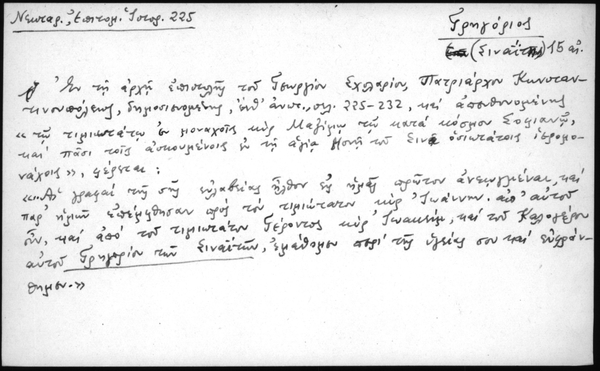 Νεκταρ. Ἐπιτομ. Ἱστορ. 225
Γρηγόριος
(Σιναΐτης) 15 αἰ.
Ἐν τῇ ἀρχῇ ἐπιστολῆς τοῦ Γεωργίου Σχολαρίου, Πατριάρχου Κωνσταν-
τινουπόλεως, δημοσιευομένης, ἔνθ' ἀνωτ., σελ. 225-232, καὶ ἀπευθυνομένης
«τῷ τιμιωτάτῳ ἐν μοναχοῖς κὺρ Μαξίμῳ τῷ κατὰ κόσμον Σοφιανῷ,
καὶ πᾶσι τοῖς ἀσκουμένοις ἐν τῇ ἁγίᾳ Μονῇ τοῦ Σινᾶ ὁσιωτάτοις ἱερομο-
νάχοις», φέρεται:
«Αἱ γραφαὶ τῆς σῆς εὐλαβείας ἦλθον εἰς ἡμᾶς πρῶτον ἀνεῳγμέναι, καὶ
παρ' ἡμῶν ἐπέμφθησαν πρὸς τὸν τιμιώτατον κὺρ Ἰωάννην. ἀπ' αὐτοῦ
οὖν, καὶ ἀπὸ τοῦ τιμιωτάτου Γέροντος κὺρ Ἰωακείμ, καὶ τοῦ Καλογέρου
αὐτοῦ Γρηγορίου τοῦ Σιναΐτου, ἐμάθομεν περὶ τῆς ὑγείας σου καὶ εὐφράν-
θημεν.»